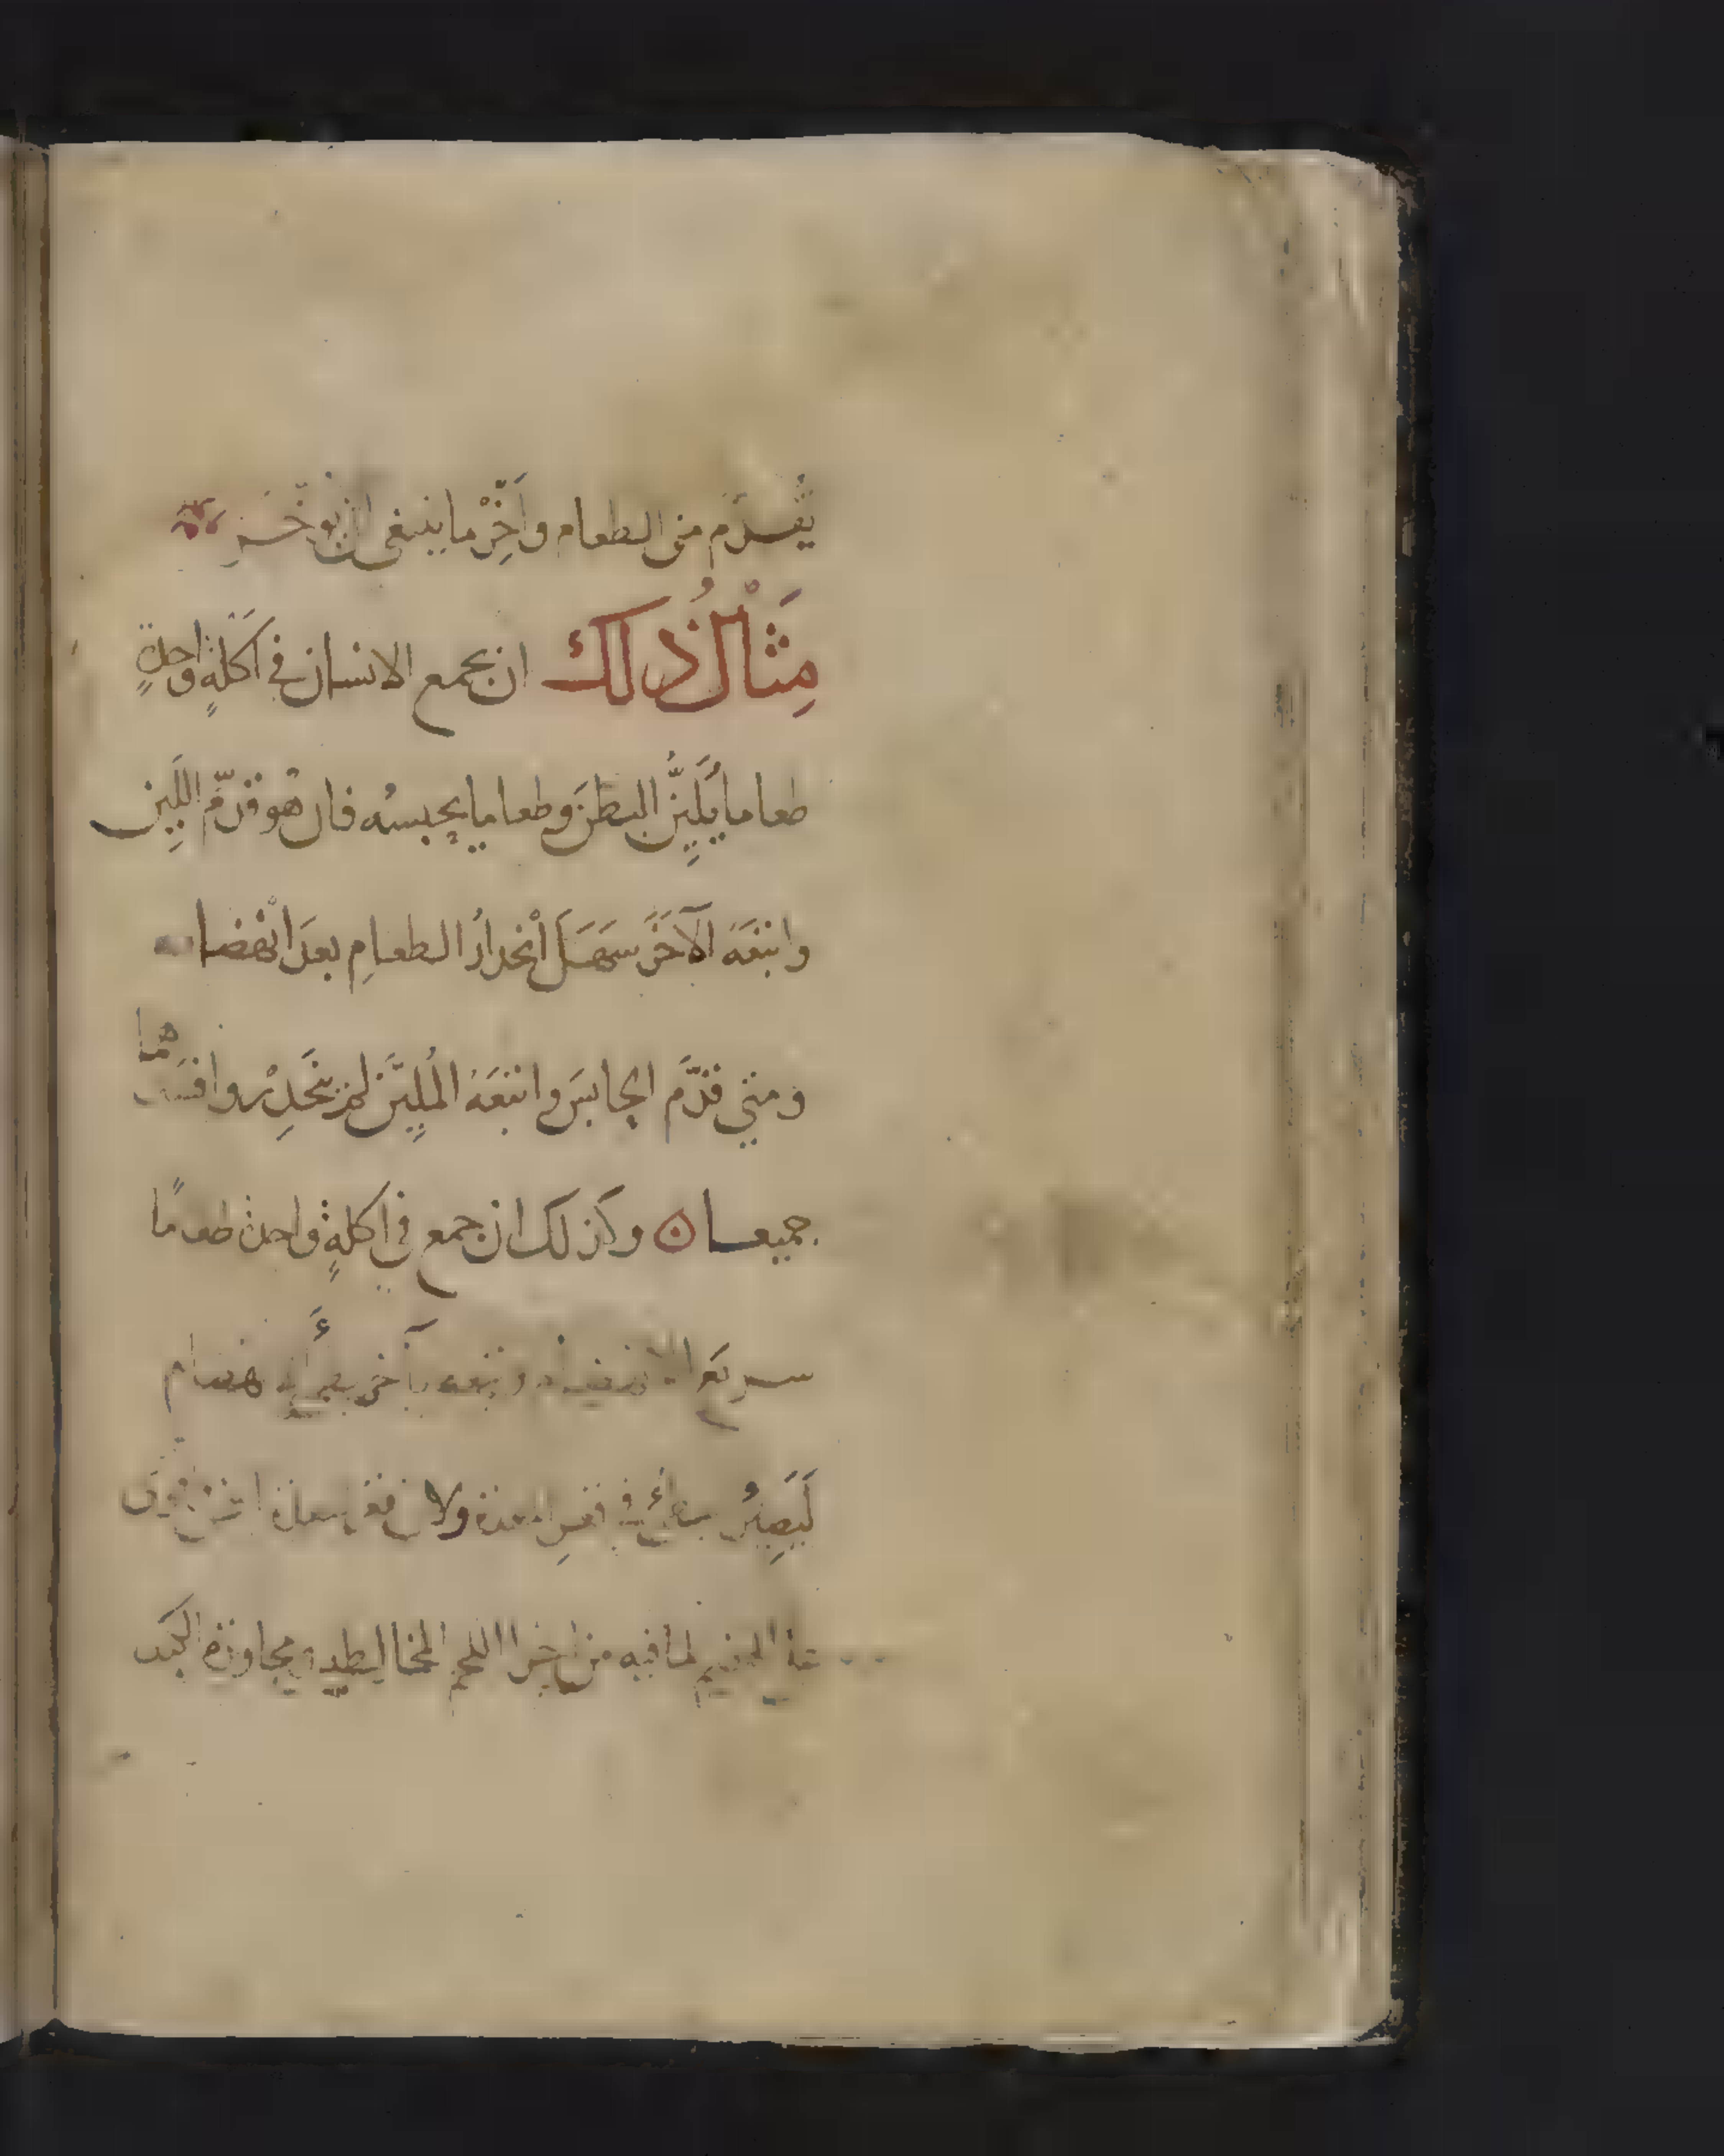 يُقدَّم من الطعام واَخِّرْ ما ينبغى ان يؤخَّر
مِثَالُ ذُلك ان يجمع الانسان فى اَكلةٍ واحدةٍ
طعاما يُلَيِّنُ البطنَ وطعاما يحبسُه فان هُو قدّمَ اللَيِّن
واتبَعَهُ الآخَرَ سَهَلَ انْحِدارُ الطعامِ بعدَ انْهضا
ومتى قدَّم الحابسَ واتبَعَهُ المُلِيَّنَ لم ينحَدِرْ وافسَدهما
جميعا وكذلك ان جمع فى اكلةٍ واحدة طعاما
سريعَ الانهضام واتبعه بآخر بطئ الانهضام
ليَصِيرُ بطئ فى قعرِ المعدة ولان قعر المعدة
على الهضم لما فيه من اجزا اللحم المخالطه ومجاوزة الكبد